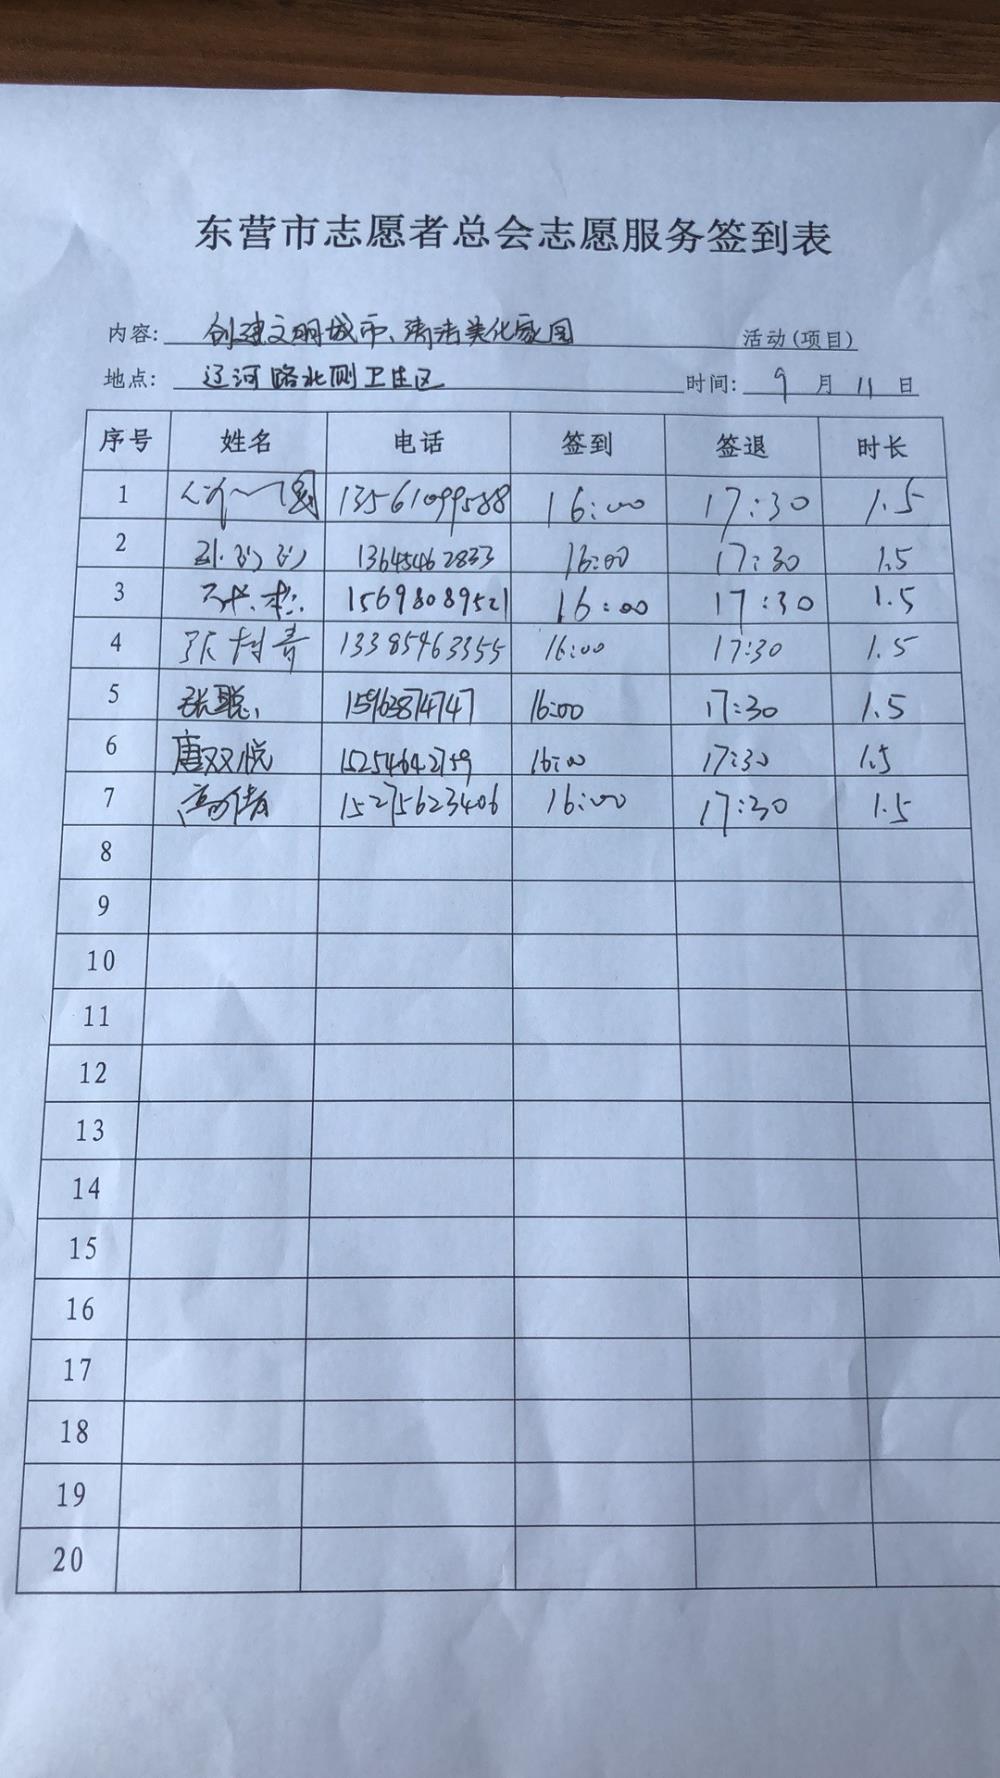 东营市志愿者总会志愿服务签到表
内容: 创建文明城市、清洁美化家园 活动(项目)
地点: 辽河路北侧卫生区 时间: 9 月 11 日
序号 姓名 电话 签到 签退 时长
1 13561099588 16:00 17:30 1.5
2 13645462833 16:00 17:30 1.5
3 15698089521 16:00 17:30 1.5
4 张树青 13385463355 16:00 17:30 1.5
5 张聪 15963874747 16:00 17:30 1.5
6 唐双悦 15254642759 16:00 17:30 1.5
7 高倩 15275623406 16:00 17:30 1.5
8
9
10
11
12
13
14
15
16
17
18
19
20